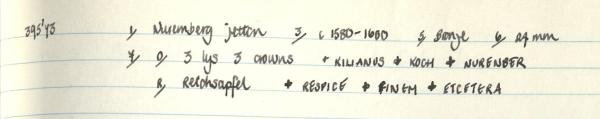 395'73 1, Nuremberg jetton 3, c 1580-1600 5, Bronze 6, 24 mm
7, O, 3 lys 3 crowns + KILIANUS + KOCH + NURENBER
R, Reichsapfel + RESPICE + FINEM + ETCETERA